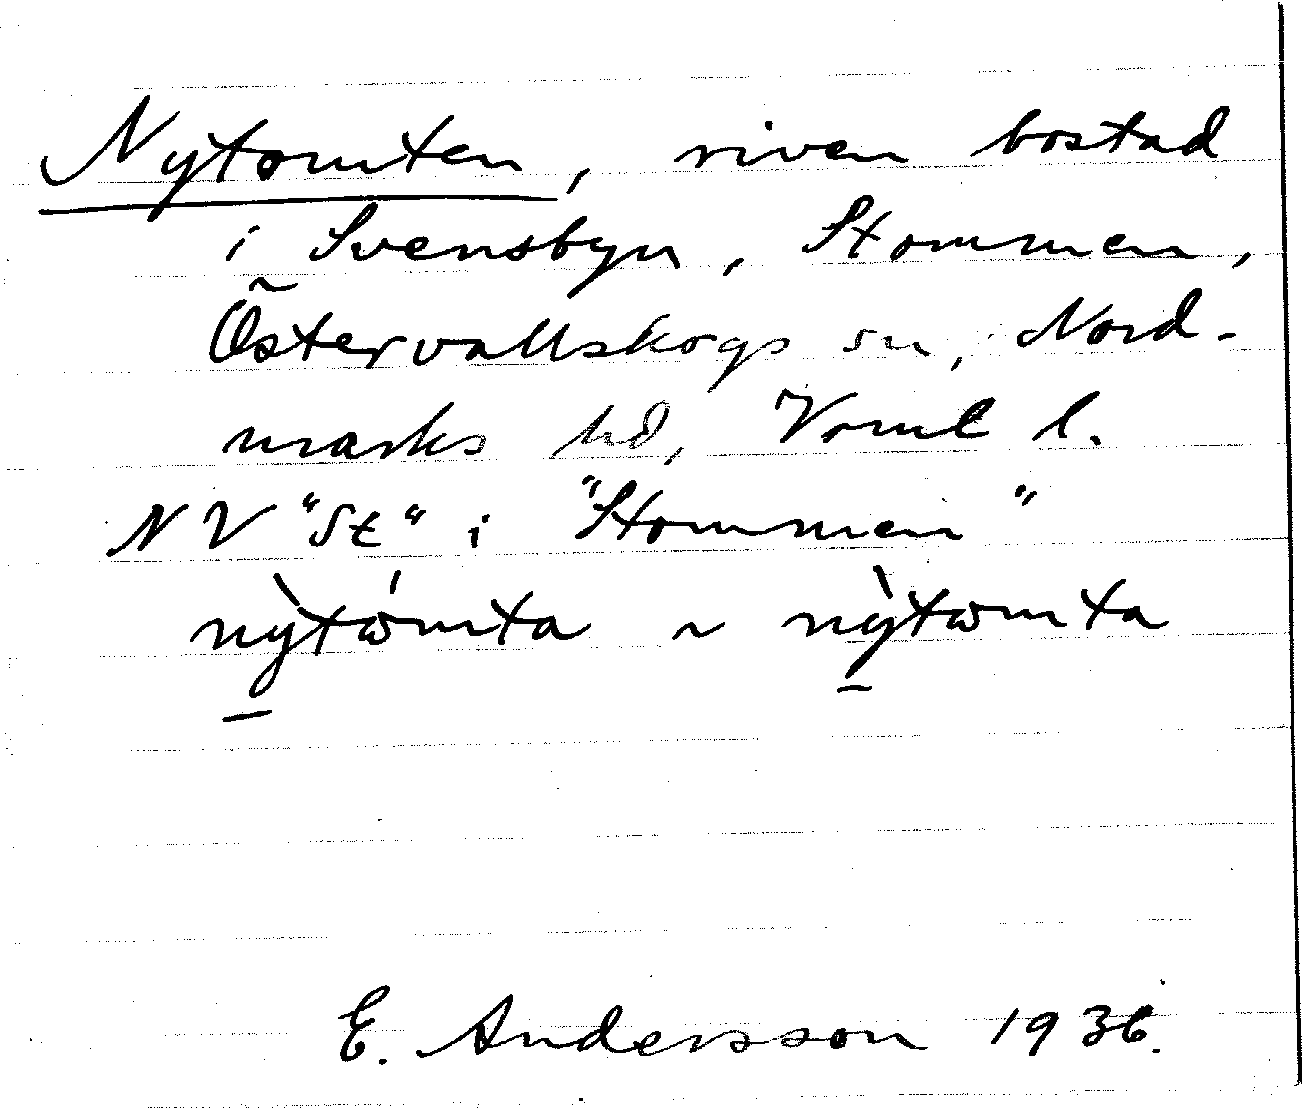 Nytomten, riven bostad
i Svensbyn, Stommen,
Östervallskogs sn, Nord-
marks hd, Vrml l.
NV "St" i "Stommen"
nỳtώmta ~ nỳtωmta
E. Andersson 1936.